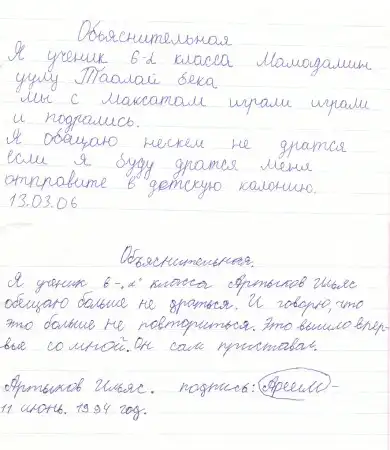 Объяснительная
Я ученик 6-2 класса Мамадамин
уулу Таалай бека
мы с Максатам играли играли
и подрались.
Я обещаю нескем не дратся
если я буду дратся меня
отправите в детскую калонию.
13.03.06
Объяснительная.
Я ученик 6-"2" класса Артыков Ильяс
обещаю больше не драться. И говорю, что
это больше не повториться. Это вышло впер-
вые со мной. Он сам приставал.
Артыков Ильяс. подпись:
11 июнь. 1994 год.